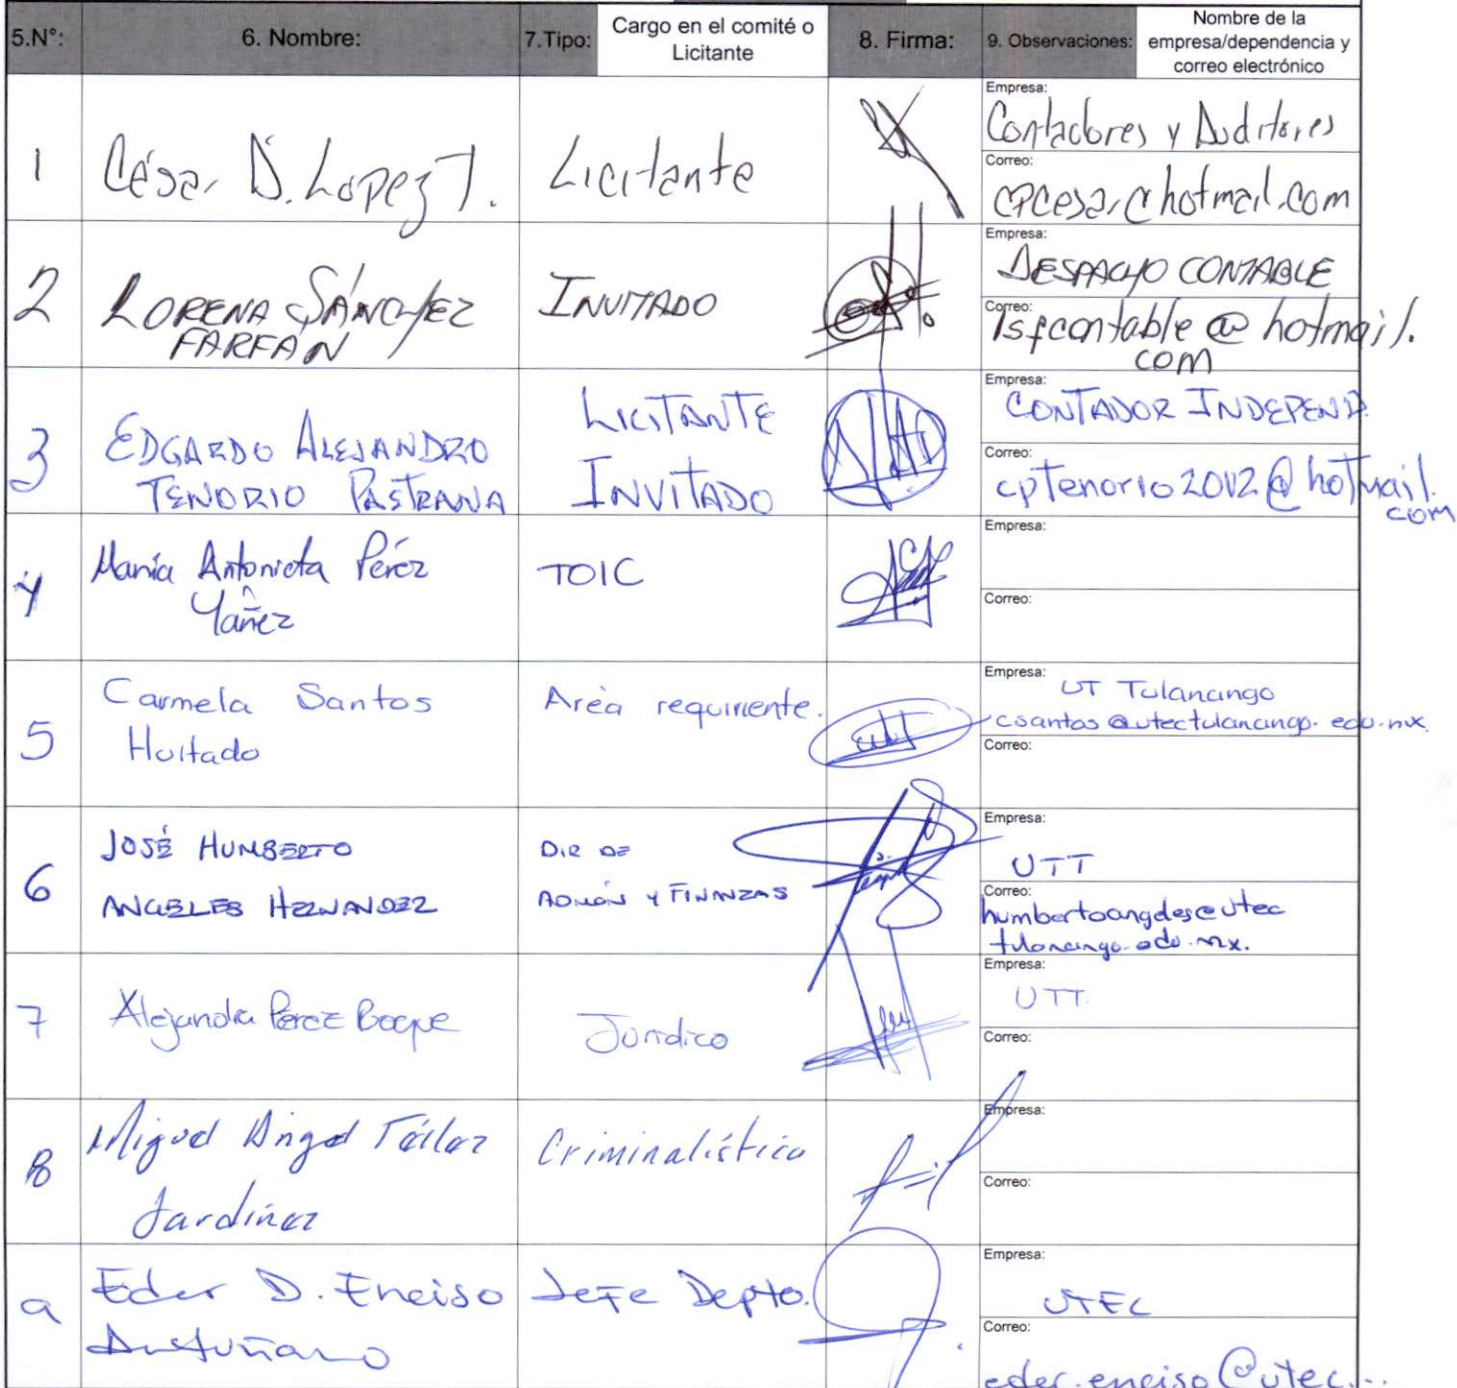 5.N°: 6. Nombre: 7.Tipo: Cargo en el comité o Licitante 8. Firma: 9. Observaciones: Nombre de la empresa/dependencia y correo electrónico
1 César D. Lopez T. Licitante
Empresa:
Contadores y Auditores
Correo:
cpcesar@hotmail.com
2 LORENA SÁNCHEZ INVITADO
FARFÁN
Empresa:
DESPACHO CONTABLE
Correo:
lsfcontable@hotmail.
com
3 EDGARDO ALEJANDRO LICITANTE
TENORIO PASTRANA INVITADO
Empresa:
CONTADOR INDEPEND.
Correo:
cptenorio2012@hotmail.
com
4 María Antonieta Pérez TOIC
Yañez
Empresa:
Correo:
5 Carmela Santos Area requirente.
Hurtado
Empresa:
UT Tulancingo
csantos@utectulancingo.edu.mx.
Correo:
6 JOSÉ HUMBERTO DIR DE
ANGELES HERNANDEZ ADMÓN Y FINANZAS
Empresa:
UTT
Correo:
humbertoangeles@utec
tulancingo.edu.mx.
7 Alejandra Pérez Jurídico
Empresa:
UTT.
Correo:
8 Miguel Angel Téllez Criminalística
Jardínez
Empresa:
Correo:
9 Eder D. Enciso Jefe Depto.
Antuñano
Empresa:
UTEC
Correo:
eder.enciso@utec...